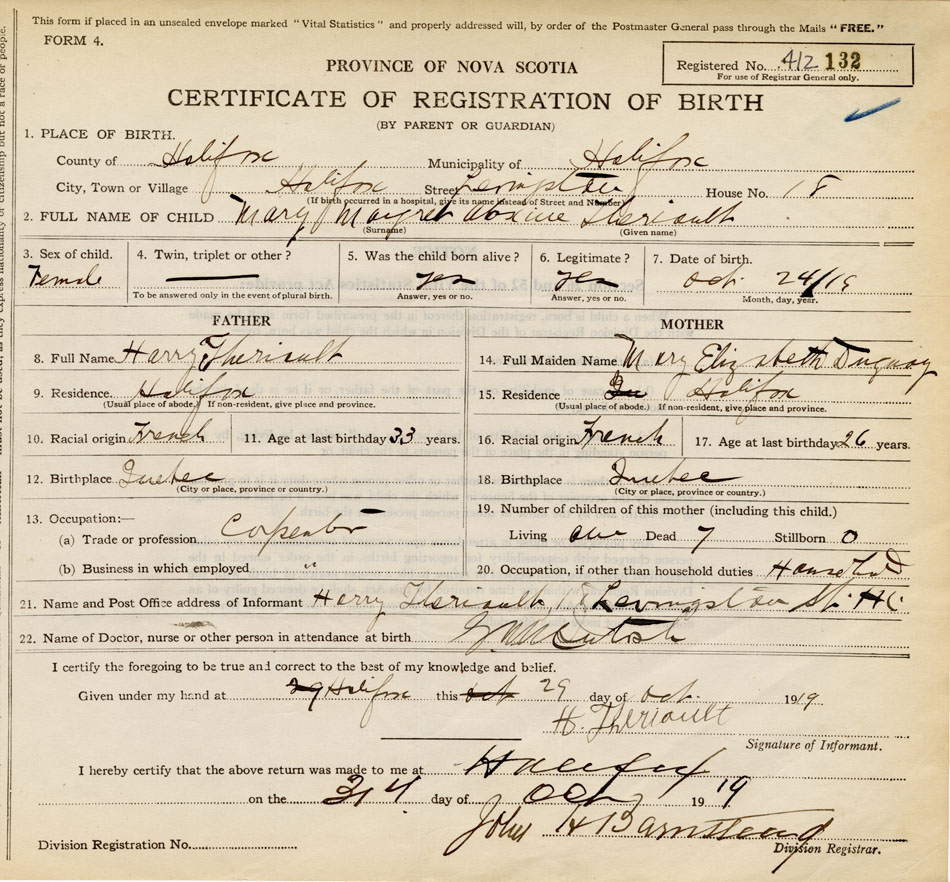 This form if placed in an unsealed envelope marked "Vital Statistics" and properly addressed will, by order of the Postmaster General pass through the Mails "FREE."
FORM 4.
Registered No. 412 132
For use of Registrar General only.
PROVINCE OF NOVA SCOTIA
CERTIFICATE OF REGISTRATION OF BIRTH
(BY PARENT OR GUARDIAN)
1. PLACE OF BIRTH.
County of Halifax Municipality of Halifax
City, Town or Village Halifax Street House No. 18
(If birth occurred in a hospital, give its name instead of Street and Number)
2. FULL NAME OF CHILD Mary Theriault
(Surname) (Given name)
3. Sex of child. 4. Twin, triplet or other? 5. Was the child born alive? 6. Legitimate? 7. Date of birth.
Female yes yes Oct 24/19
To be answered only in the event of plural birth. Answer, yes or no. Answer, yes or no. Month, day, year.
FATHER MOTHER
8. Full Name Harry Theriault 14. Full Maiden Name Mary Elizabeth Duguay
9. Residence Halifax 15. Residence Halifax
(Usual place of abode. If non-resident, give place and province. (Usual place of abode. If non-resident, give place and province.
10. Racial origin French 11. Age at last birthday 33 years. 16. Racial origin French 17. Age at last birthday 26 years.
12. Birthplace Quebec 18. Birthplace Quebec
(City or place, province or country.) (City or place, province or country.)
13. Occupation:— 19. Number of children of this mother (including this child.)
(a) Trade or profession Carpenter Living Dead 7 Stillborn 0
(b) Business in which employed " 20. Occupation, if other than household duties Household
21. Name and Post Office address of Informant Harry Theriault, 18 Levingston St. 
22. Name of Doctor, nurse or other person in attendance at birth
I certify the foregoing to be true and correct to the best of my knowledge and belief.
Given under my hand at Halifax this 29 day of Oct. 1919
H. Theriault
Signature of Informant.
I hereby certify that the above return was made to me at Halifax
on the day of Oct 1919
John H Barnstead
Division Registration No. Division Registrar.